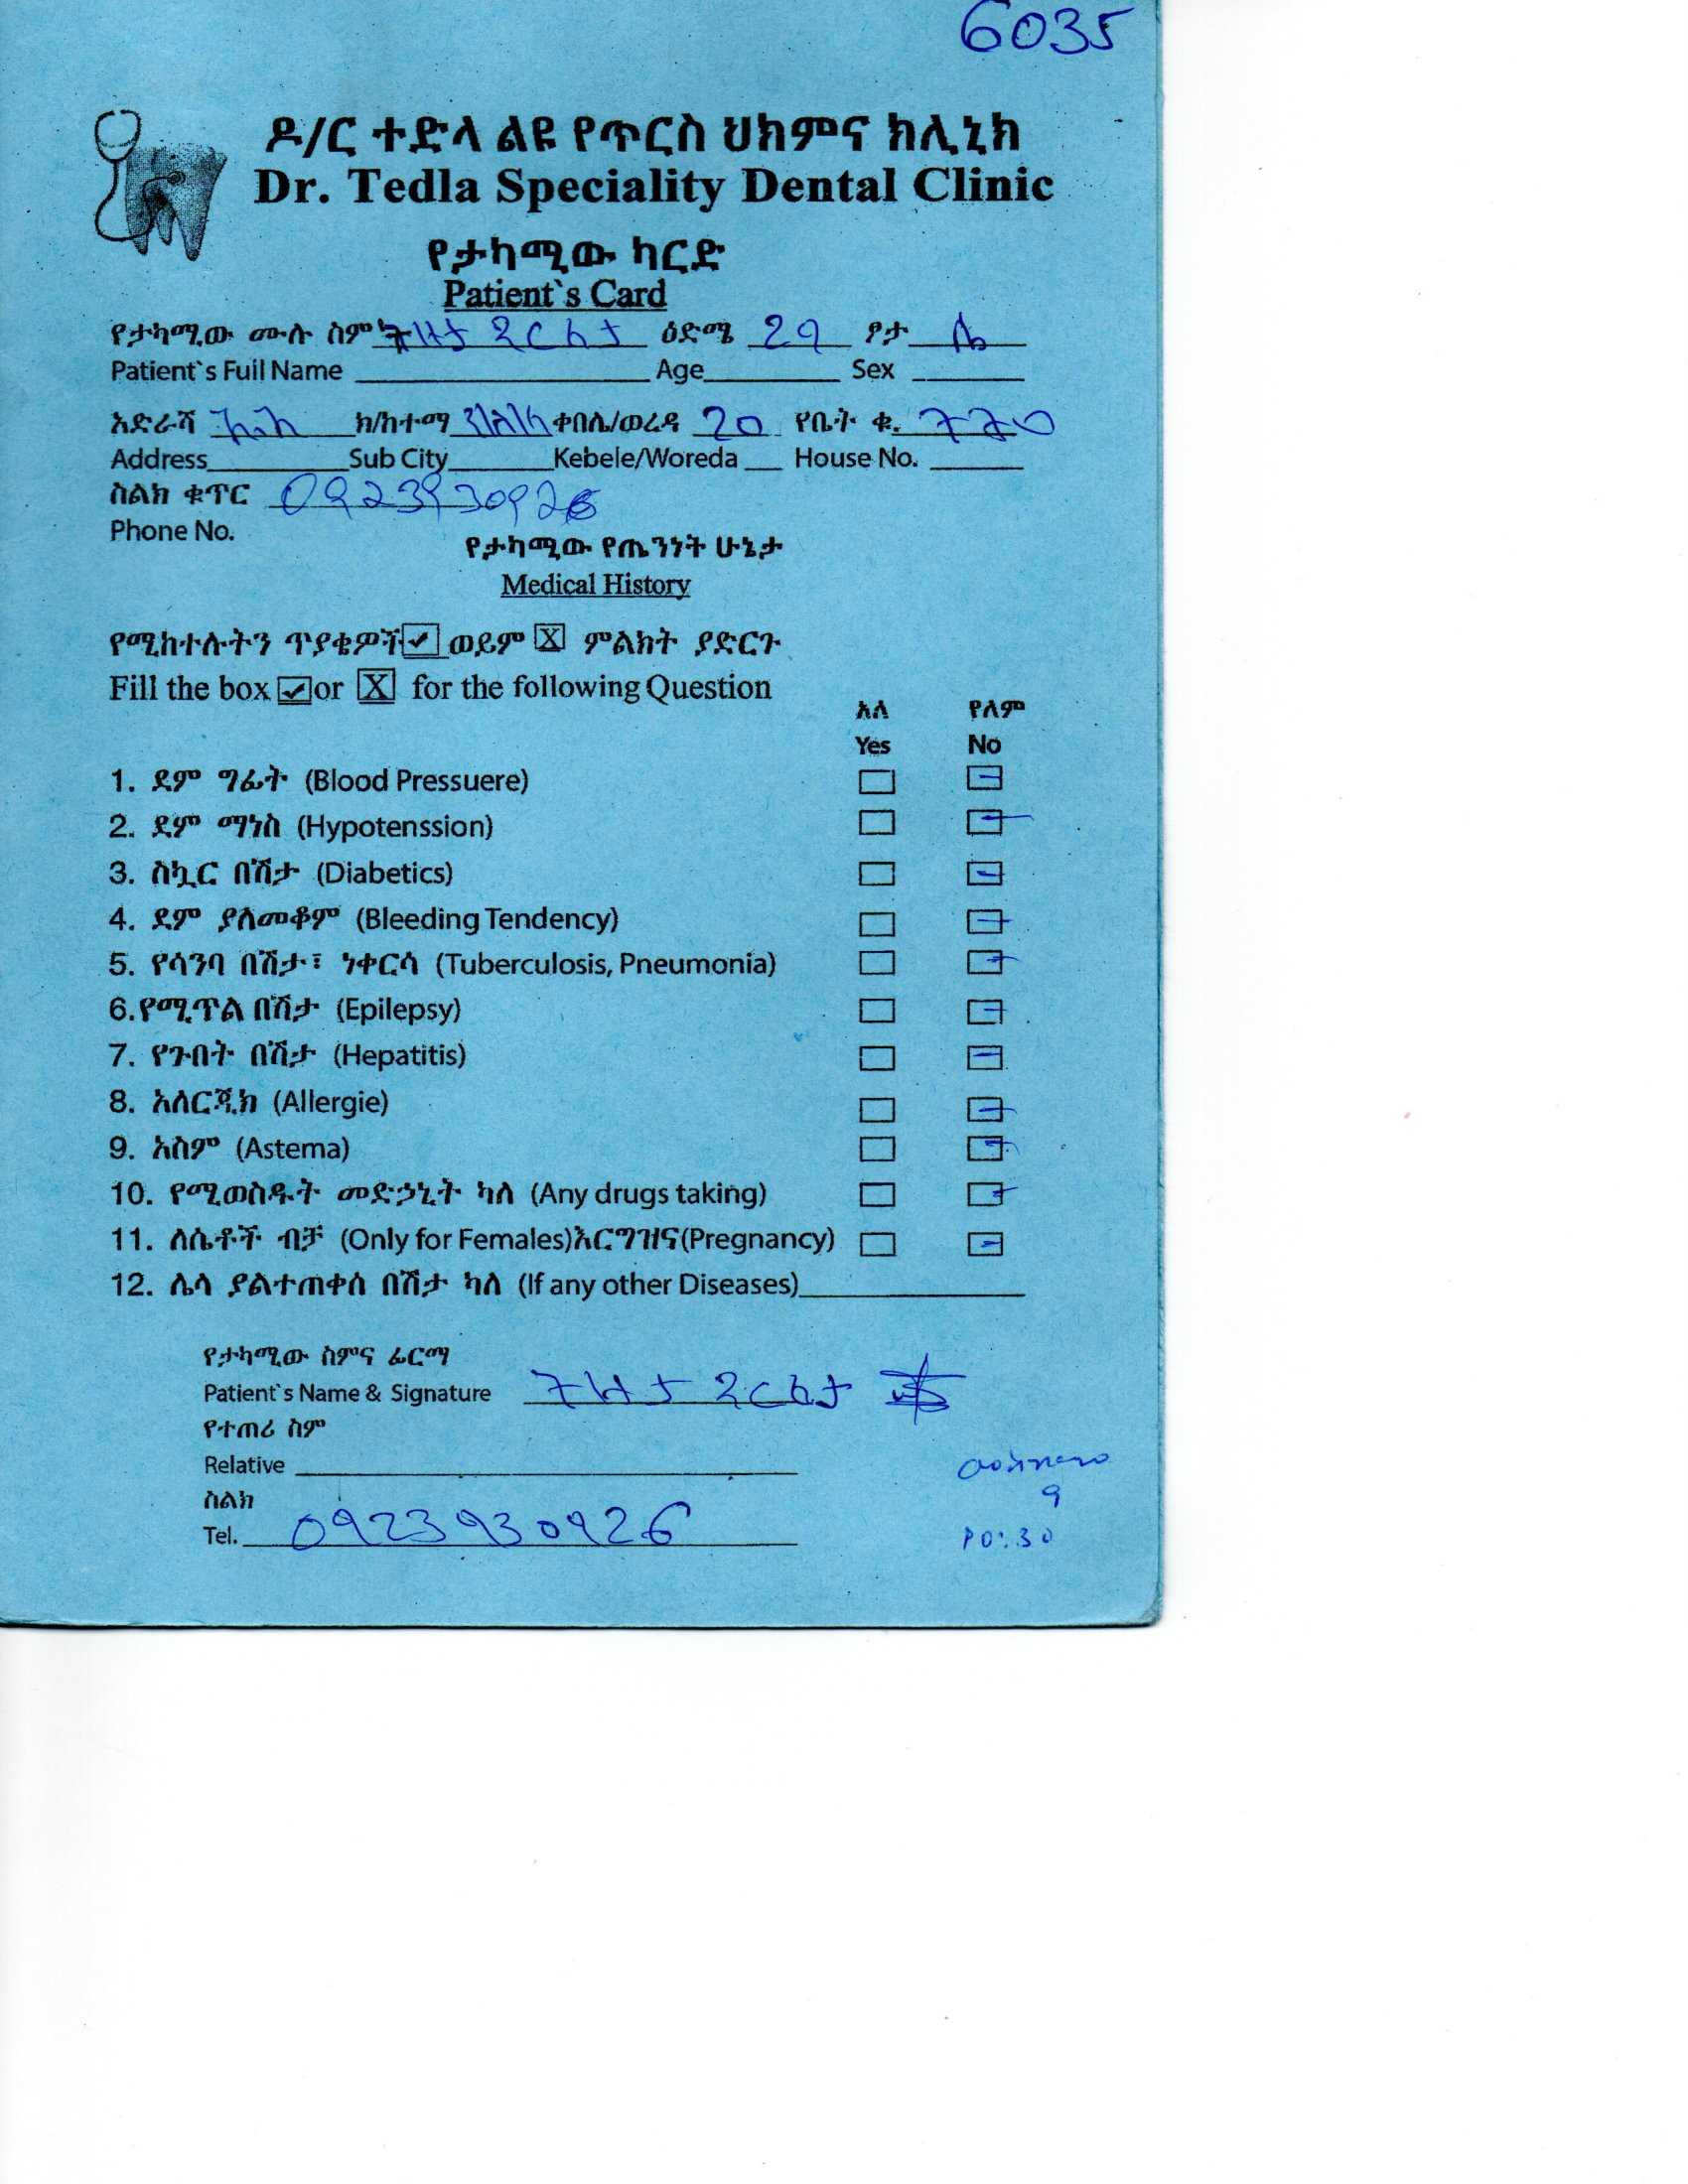 6035
ዶ/ር ተድላ ልዩ የጥርስ ህክምና ክሊኒክ
Dr. Tedla Speciality Dental Clinic
የታካሚው ካርድ
Patient`s Card
የታካሚው ሙሉ ስም ዕድሜ 29 ፆታ ሴ
Patient`s Fuil Name Age Sex
አድራሻ አ.አ ክ/ከተማ ቀበሌ/ወረዳ 20 የቤት ቁ. 770
Address Sub City Kebele/Woreda House No.
ስልክ ቁጥር 0923930926
Phone No.
የታካሚው የጤንነት ሁኔታ
Medical History
የሚከተሉትን ጥያቄዎች ✓ ወይም X ምልክት ያድርጉ
Fill the box ✓ or X for the following Question
አለ የለም
Yes No
1. ደም ግፊት (Blood Pressuere) -
2. ደም ማነስ (Hypotenssion) -
3. ስኳር በሽታ (Diabetics) -
4. ደም ያለመቆም (Bleeding Tendency) -
5. የሳንባ በሽታ፣ ነቀርሳ (Tuberculosis, Pneumonia) -
6.የሚጥል በሽታ (Epilepsy) -
7. የጉበት በሽታ (Hepatitis) -
8. አለርጂክ (Allergie) -
9. አስም (Astema) -
10. የሚወስዱት መድኃኒት ካለ (Any drugs taking) -
11. ለሴቶች ብቻ (Only for Females)እርግዝና(Pregnancy) -
12. ሌላ ያልተጠቀሰ በሽታ ካለ (If any other Diseases)
የታካሚው ስምና ፊርማ
Patient`s Name & Signature
የተጠሪ ስም
Relative
ስልክ
9
Tel. 0923930926
10:30